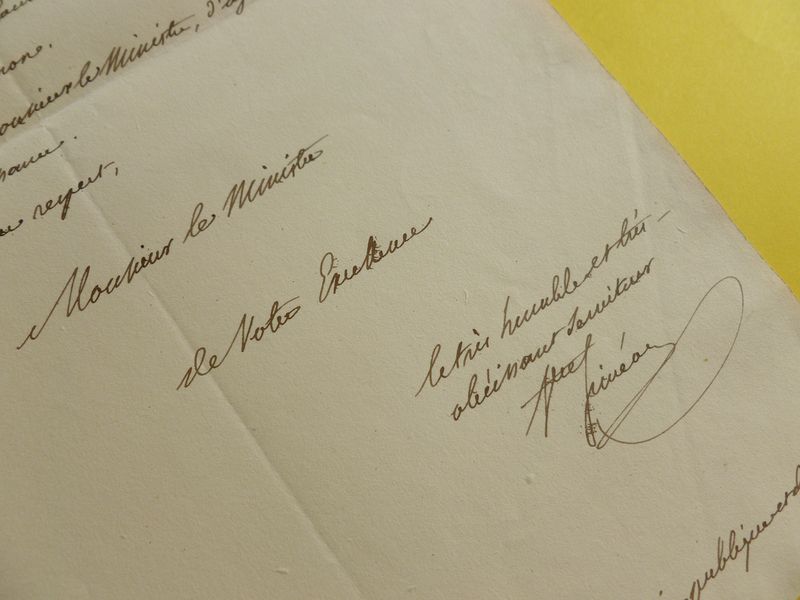 Monsieur le Ministre, d'a
respect,
Monsieur le Ministre
de Votre Excellence
le très humble et très-
obéissant serviteur
publique et d